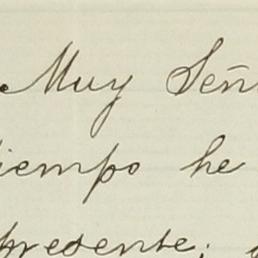 Muy Señ
iempo he
presente;